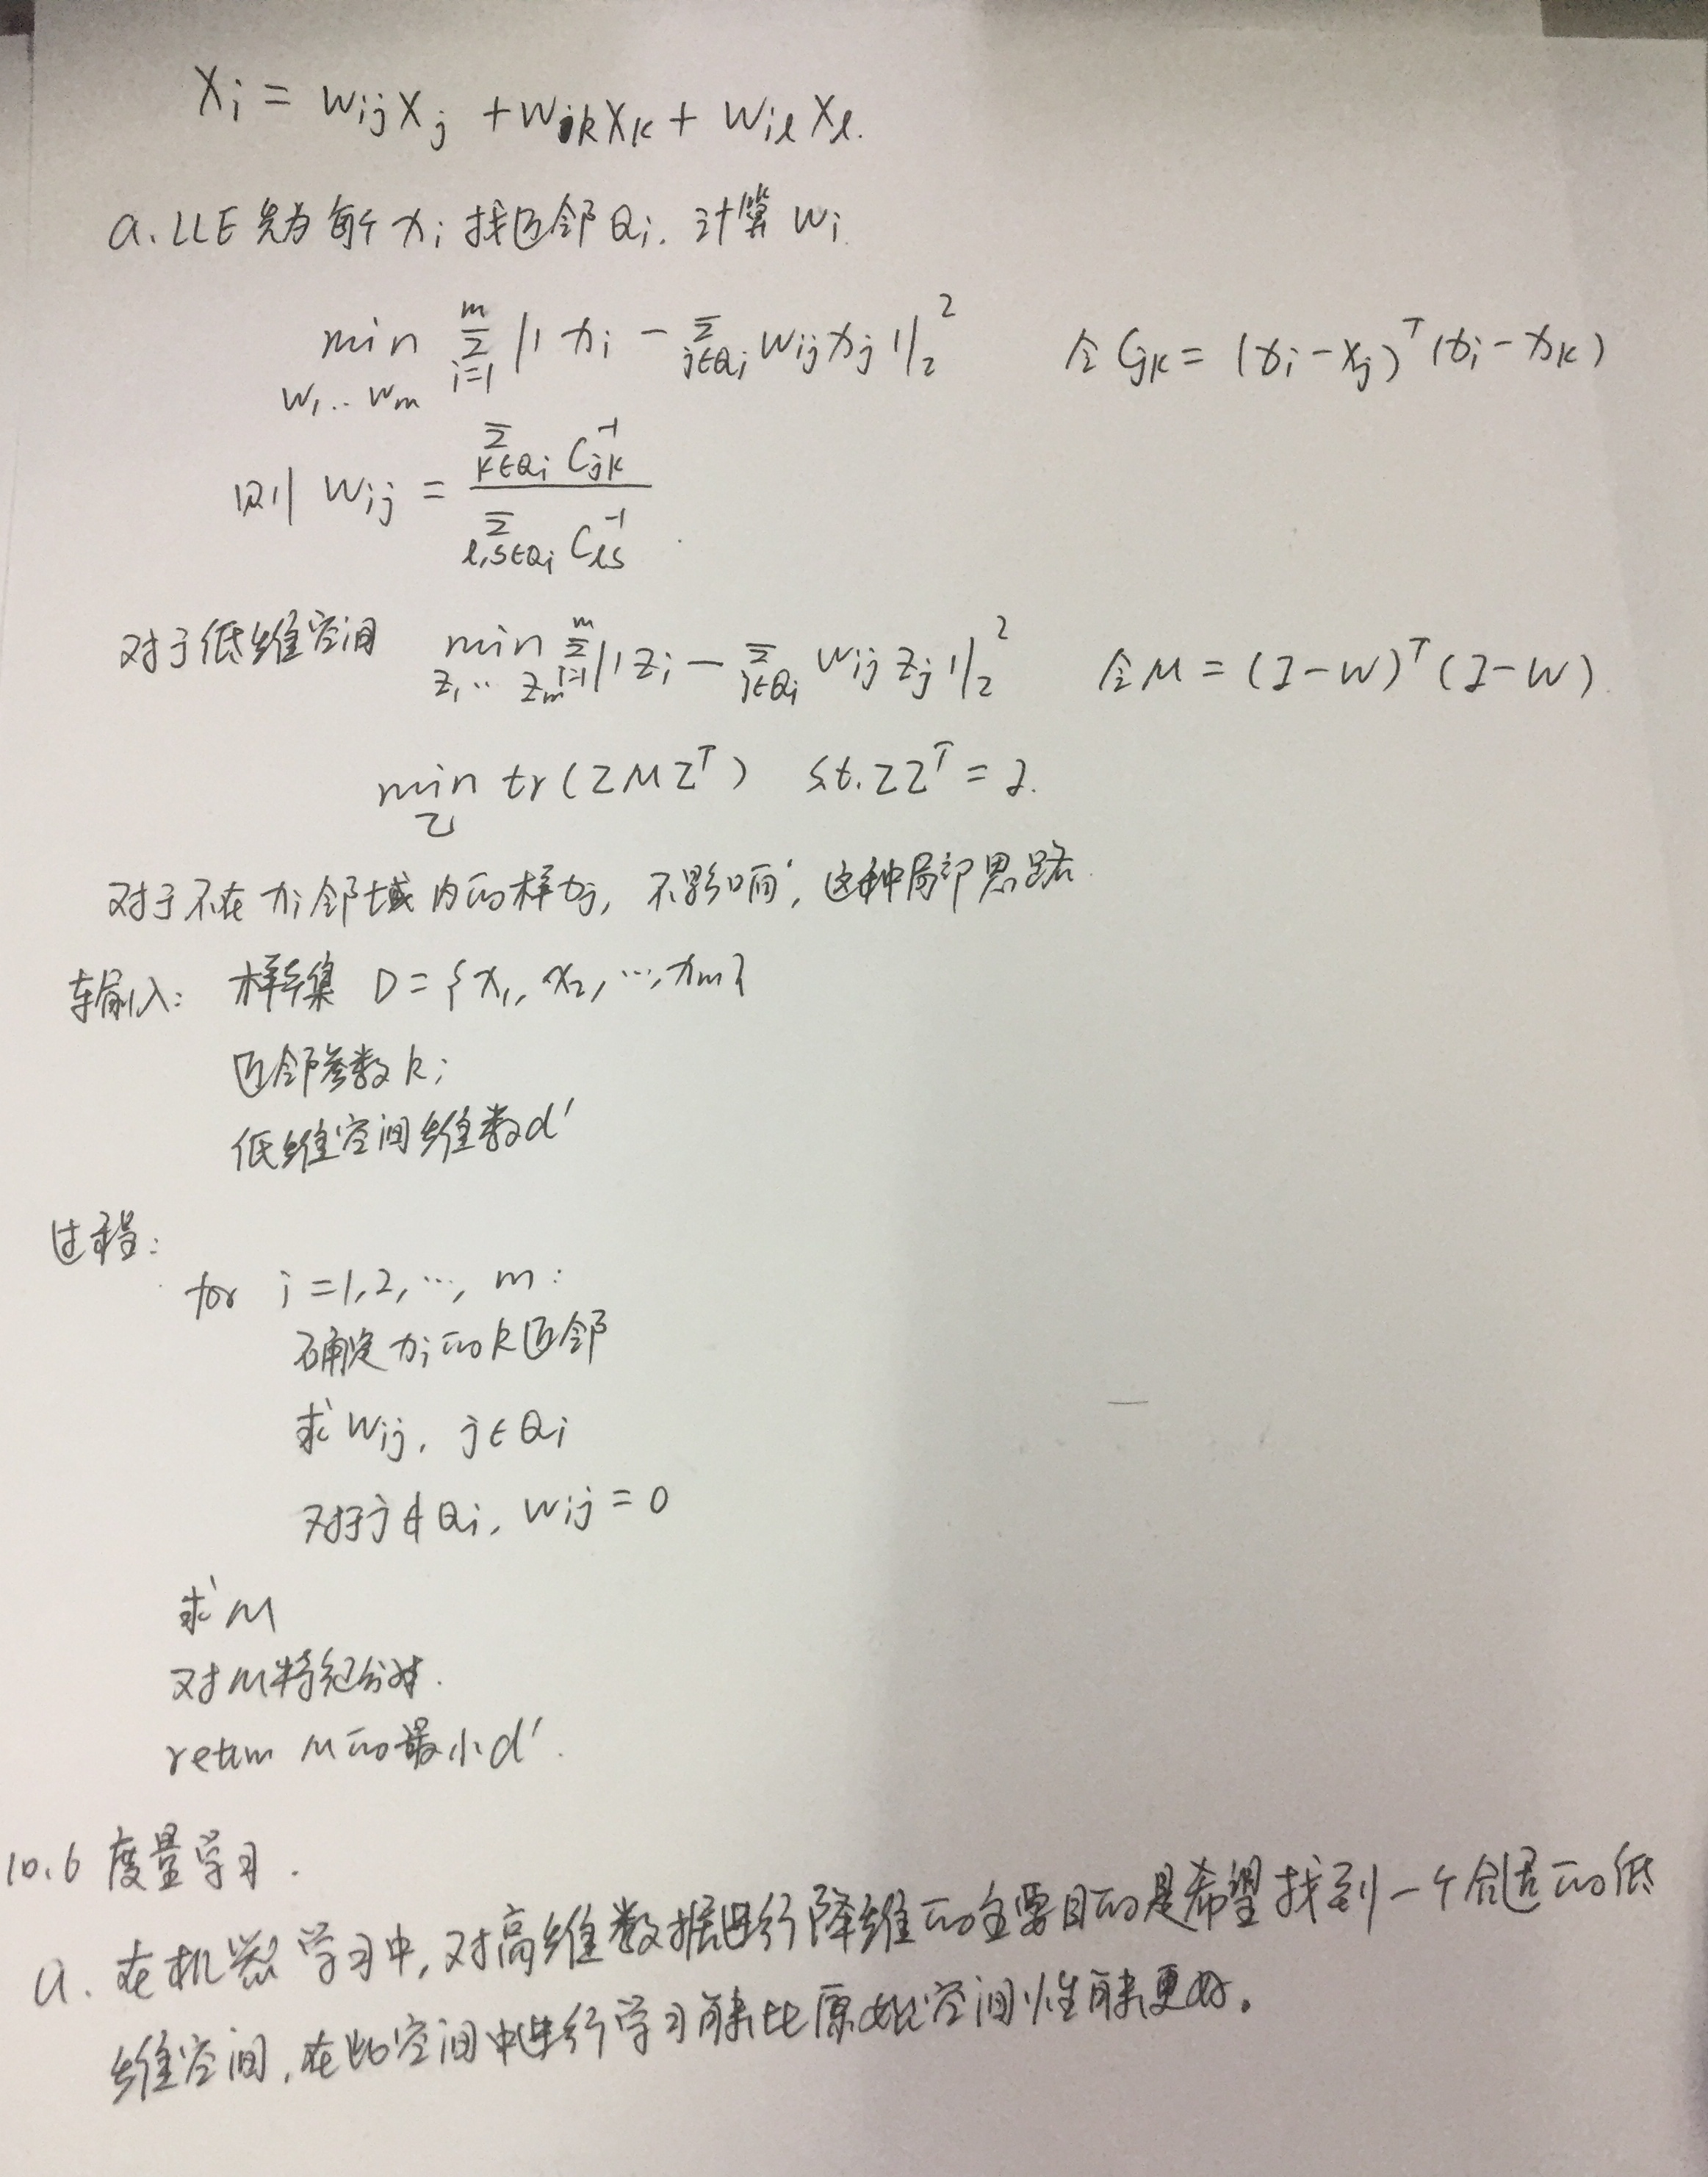 x_i = w_ij x_j + w_ik x_k + w_il x_l.
a. LLE 先为每个 x_i 找近邻 Q_i. 计算 w_i.
min_{w_1..w_m} Σ_{i=1}^{m} ||x_i - Σ_{j∈Q_i} w_ij x_j||_2^2 令 C_jk = (x_i - x_j)^T (x_i - x_k)
则 w_ij = Σ_{k∈Q_i} C_jk^{-1} / Σ_{l,s∈Q_i} C_ls^{-1}
对于低维空间 min_{z_1.. z_m} Σ_{i=1}^{m} ||z_i - Σ_{j∈Q_i} w_ij z_j||_2^2 令 M = (I-W)^T (I-W)
min_Z tr(ZMZ^T) s.t. ZZ^T = I.
对于不在 x_i 邻域内的样 x_j, 不影响, 这种局部思路
输入: 样本集 D = {x_1, x_2, ..., x_m}
近邻参数 k;
低维空间维数 d'
过程:
for i = 1,2,..., m:
确定 x_i 的 k 近邻
求 w_ij, j∈Q_i
对于 j∉Q_i, w_ij = 0
求 M
对 M 特征分解.
return M 的最小 d'.
10.6 度量学习.
a. 在机器学习中, 对高维数据进行降维的主要目的是希望找到一个合适的低
维空间, 在此空间中进行学习能比原始空间性能更好。